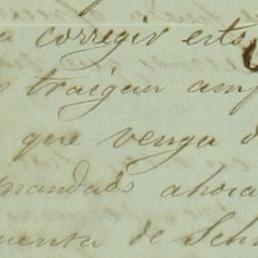 a corregir esta
traigan
que venga
mandado ahora
cuenta de Sch